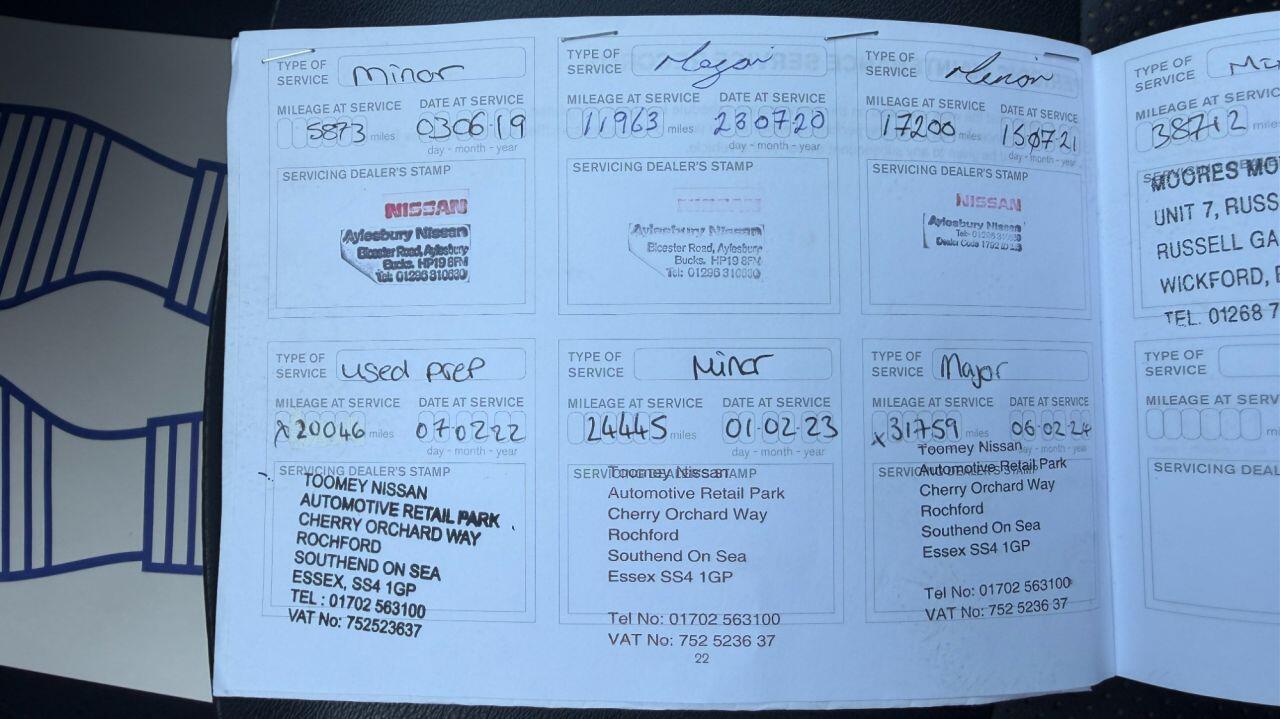 TYPE OF SERVICE Minor
MILEAGE AT SERVICE DATE AT SERVICE
5873 miles 03 06 19
day - month - year
SERVICING DEALER'S STAMP
NISSAN
Aylesbury Nissan
Bicester Road, Aylesbury
Bucks. HP19 8FN
Tel: 01296 310630
TYPE OF SERVICE
MILEAGE AT SERVICE DATE AT SERVICE
11963 miles 23 07 20
day - month - year
SERVICING DEALER'S STAMP
NISSAN
Aylesbury Nissan
Bicester Road, Aylesbury
Bucks. HP19 8FN
Tel: 01296 310630
TYPE OF SERVICE
MILEAGE AT SERVICE DATE AT SERVICE
17200 miles 15 07 21
day - month - year
SERVICING DEALER'S STAMP
NISSAN
Aylesbury Nissan
Tel: 01296 310630
Dealer Code 1792
TYPE OF SERVICE
MILEAGE AT SERVICE
38712 miles
MOORES MO
UNIT 7, RUSS
RUSSELL GA
WICKFORD, E
TEL. 01268 7
TYPE OF SERVICE used prep
MILEAGE AT SERVICE DATE AT SERVICE
x20046 miles 07 02 22
day - month - year
SERVICING DEALER'S STAMP
TOOMEY NISSAN
AUTOMOTIVE RETAIL PARK
CHERRY ORCHARD WAY
ROCHFORD
SOUTHEND ON SEA
ESSEX, SS4 1GP
TEL : 01702 563100
VAT No: 752523637
TYPE OF SERVICE Minor
MILEAGE AT SERVICE DATE AT SERVICE
24445 miles 01-02-23
day - month - year
SERVICING DEALER'S STAMP
Toomey Nissan
Automotive Retail Park
Cherry Orchard Way
Rochford
Southend On Sea
Essex SS4 1GP
Tel No: 01702 563100
VAT No: 752 5236 37
TYPE OF SERVICE Major
MILEAGE AT SERVICE DATE AT SERVICE
x31759 miles 06-02-24
day - month - year
SERVICING DEALER'S STAMP
Toomey Nissan
Automotive Retail Park
Cherry Orchard Way
Rochford
Southend On Sea
Essex SS4 1GP
Tel No: 01702 563100
VAT No: 752 5236 37
TYPE OF SERVICE
MILEAGE AT SERV
miles
SERVICING DEAL
22